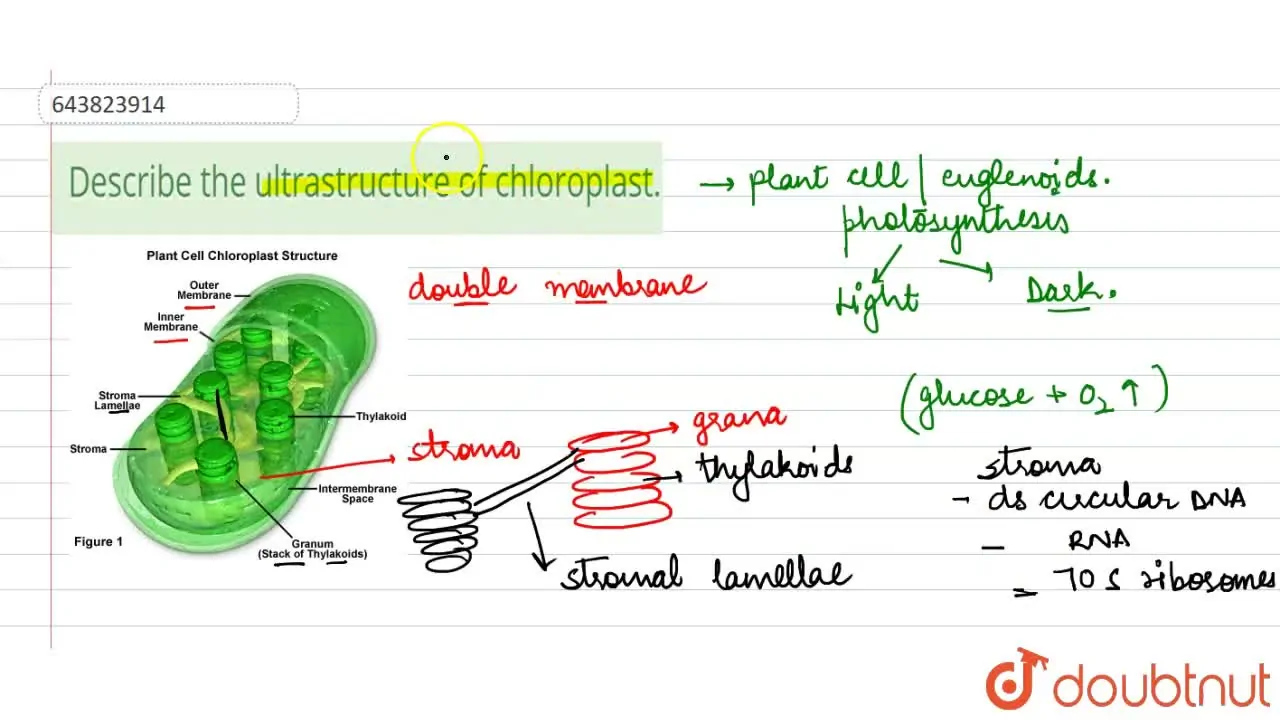 643823914
Describe the ultrastructure of chloroplast.
→ plant cell | euglenoids.
photosynthesis
Light
Dark.
(glucose + O2 ↑)
Plant Cell Chloroplast Structure
Outer
Membrane
Inner
Membrane
Stroma
Lamellae
Stroma
Thylakoid
Intermembrane
Space
Granum
(Stack of Thylakoids)
Figure 1
double membrane
stroma
grana
thylakoids
stromal lamellae
stroma
- ds circular DNA
- RNA
= 70 S ribosomes
doubtnut